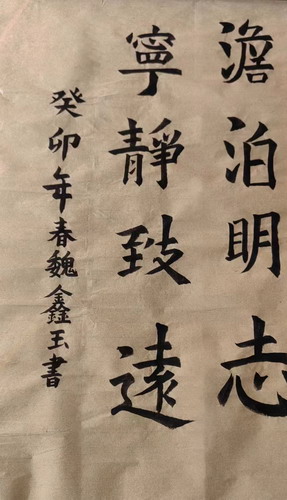 澹泊明志
寧靜致遠
癸卯年春魏鑫玉書